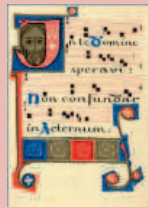 In te Domine
speravi:
Non confundar
in Aeternum: